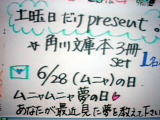 土曜日だけpresent。
☆角川文庫本3冊
set 1名
6/28(ムニャ)の日
ムニャムニャ夢の日♡
あなたが最近見た夢を教えて下さい